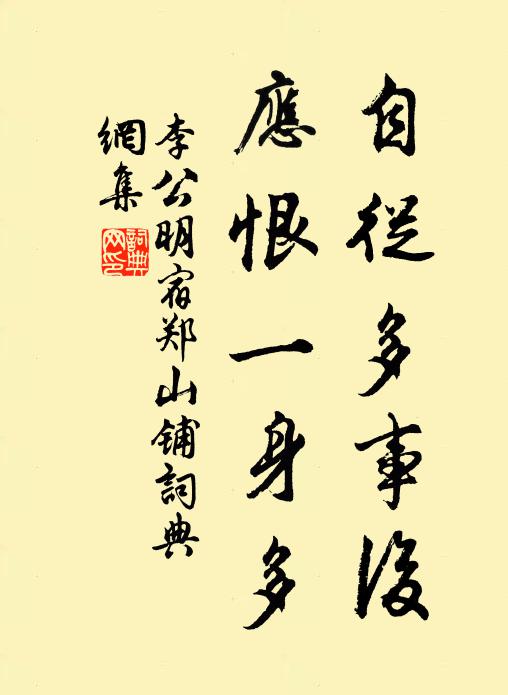 自從多事後
應恨一身多
李公明宿郑山铺詞典
網集
詞典
网印